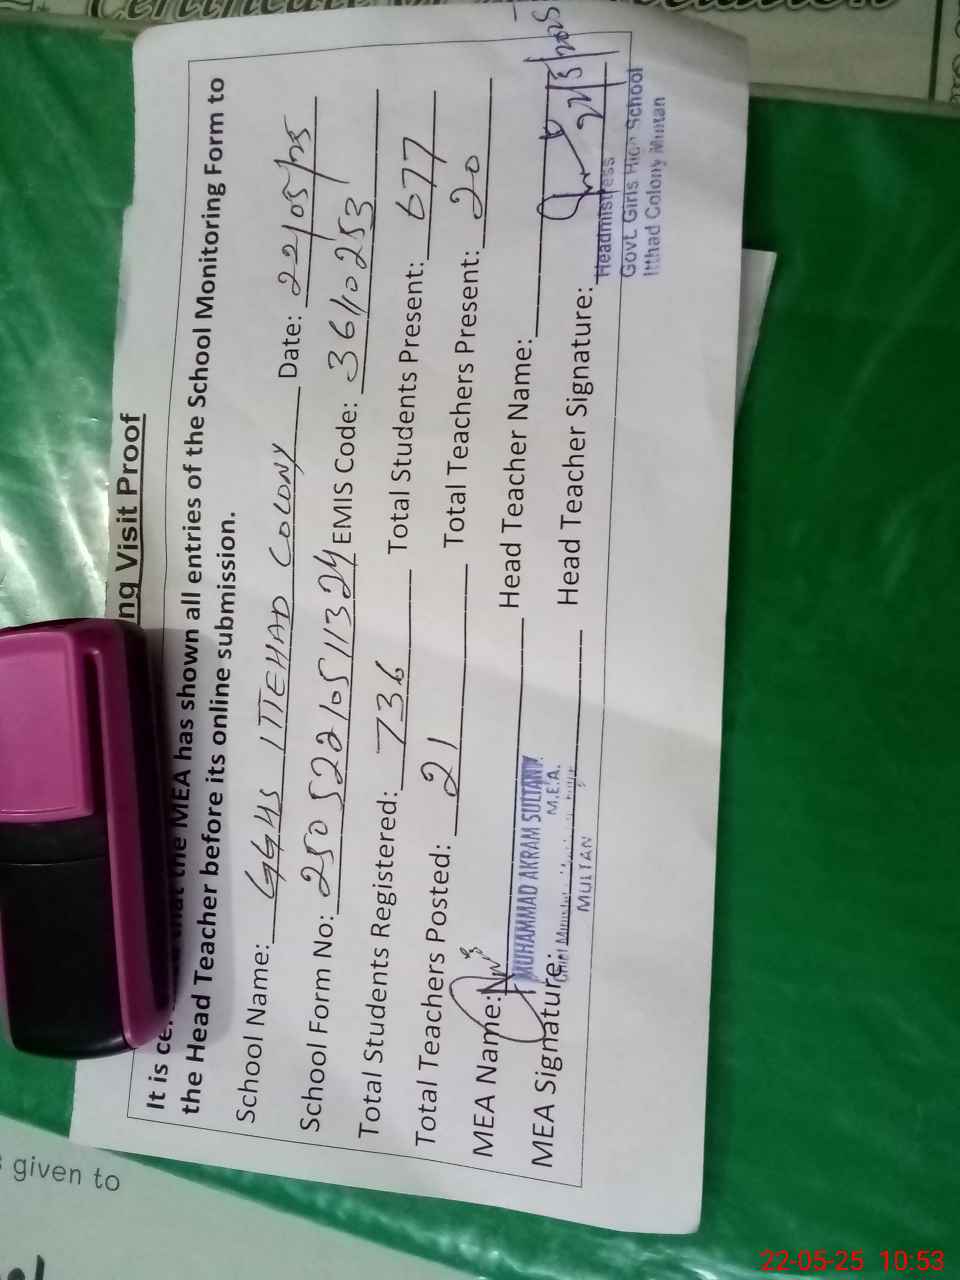 ng Visit Proof
It is that the MEA has shown all entries of the School Monitoring Form to
the Head Teacher before its online submission.
School Name: GGHS ITTEHAD COLONY Date: 22/05/25
School Form No: 25052210511324 EMIS Code: 36110253
Total Students Registered: 736 Total Students Present: 677
Total Teachers Posted: 21 Total Teachers Present: 20
MEA Name: Head Teacher Name:
MUHAMMAD AKRAM SULTANI
M.E.A.
MEA Signature: Head Teacher Signature:
MULTAN
Headmistress
Govt. Girls High School
Itthad Colony Multan
given to
22-05-25 10:53